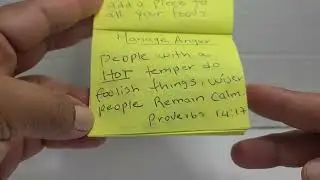 add a piece to
all your foods
Manage Anger
People with a
HOT temper do
foolish things, wiser
people Remain calm.
Proverbs 14:17